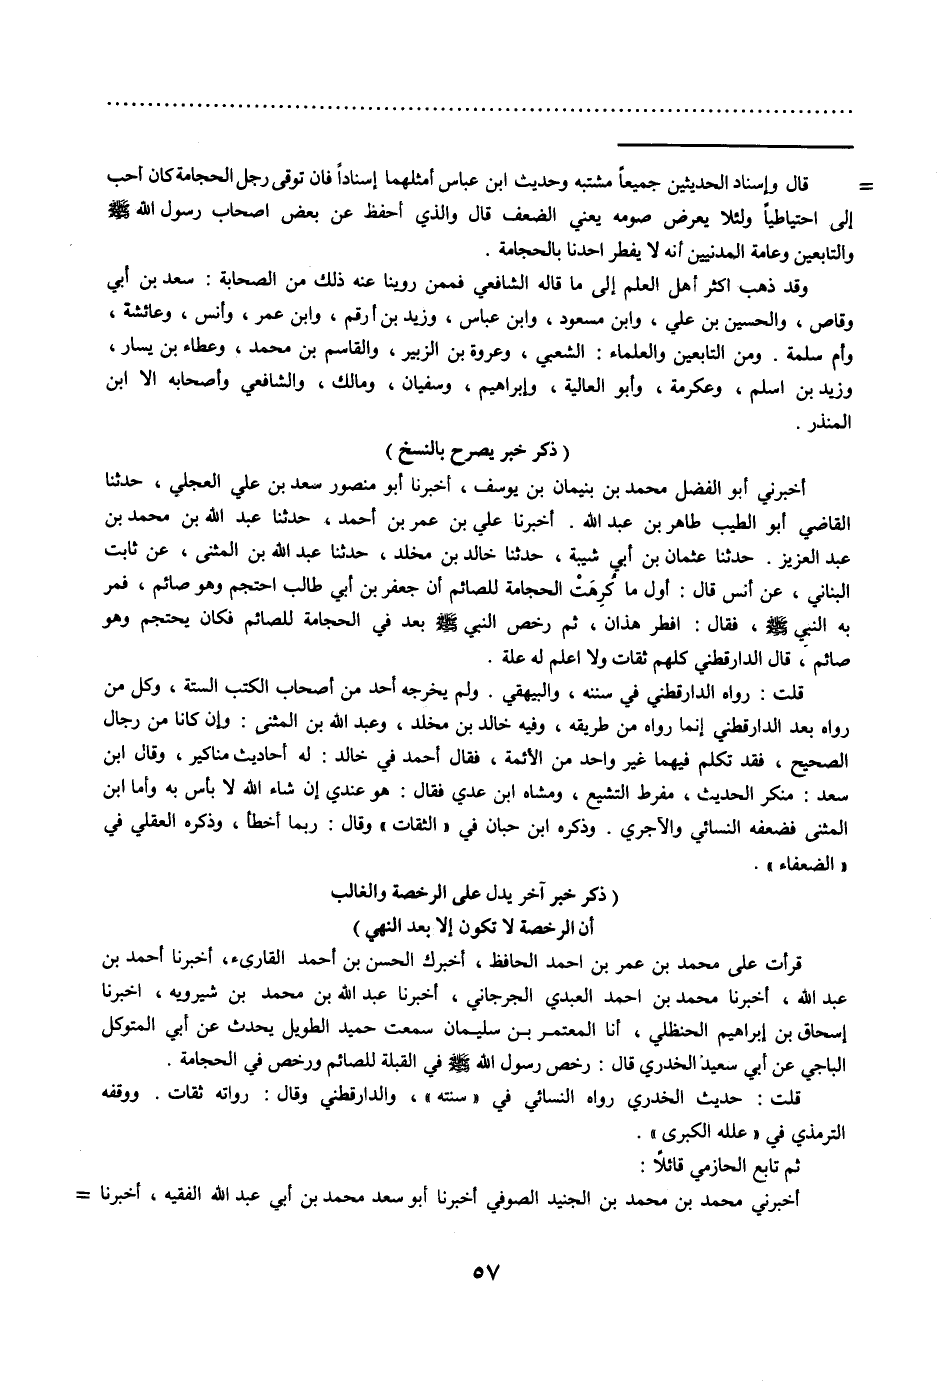 = قال وإسناد الحديثين جميعاً مشتبه وحديث ابن عباس أمثلهما إسناداً فان توقى رجل الحجامة كان أحب
إلى احتياطياً ولئلا يعرض صومه يعني الضعف قال والذي أحفظ عن بعض اصحاب رسول الله ﷺ
والتابعين وعامة المدنيين أنه لا يفطر احدنا بالحجامة .
وقد ذهب اكثر أهل العلم إلى ما قاله الشافعي فممن روينا عنه ذلك من الصحابة : سعد بن أبي
وقاص ، والحسين بن علي ، وابن مسعود ، وابن عباس ، وزيد بن أرقم ، وابن عمر ، وأنس ، وعائشة ،
وأم سلمة . ومن التابعين والعلماء : الشعبي ، وعروة بن الزبير ، والقاسم بن محمد ، وعطاء بن يسار ،
وزيد بن اسلم ، وعكرمة ، وأبو العالية ، وإبراهيم ، وسفيان ، ومالك ، والشافعي وأصحابه الا ابن
المنذر .
( ذكر خبر يصرح بالنسخ )
أخبرني أبو الفضل محمد بن بنيمان بن يوسف ، أخبرنا أبو منصور سعد بن علي العجلي ، حدثنا
القاضي أبو الطيب طاهر بن عبد الله . أخبرنا علي بن عمر بن أحمد ، حدثنا عبد الله بن محمد بن
عبد العزيز . حدثنا عثمان بن أبي شيبة ، حدثنا خالد بن مخلد ، حدثنا عبد الله بن المثنى ، عن ثابت
البناني ، عن أنس قال : أول ما كُرِهَتْ الحجامة للصائم أن جعفر بن أبي طالب احتجم وهو صائم ، فمر
به النبي ﷺ ، فقال : افطر هذان ، ثم رخص النبي ﷺ بعد في الحجامة للصائم فكان يحتجم وهو
صائم ، قال الدارقطني كلهم ثقات ولا اعلم له علة .
قلت : رواه الدارقطني في سننه ، والبيهقي . ولم يخرجه أحد من أصحاب الكتب الستة ، وكل من
رواه بعد الدارقطني إنما رواه من طريقه ، وفيه خالد بن مخلد ، وعبد الله بن المثنى : وإن كانا من رجال
الصحيح ، فقد تكلم فيهما غير واحد من الأئمة ، فقال أحمد في خالد : له أحاديث مناكير ، وقال ابن
سعد : منكر الحديث ، مفرط التشيع ، ومشاه ابن عدي فقال : هو عندي إن شاء الله لا بأس به وأما ابن
المثنى فضعفه النسائي والآجري . وذكره ابن حبان في « الثقات » وقال : ربما أخطأ ، وذكره العقلي في
« الضعفاء » .
( ذكر خبر آخر يدل على الرخصة والغالب
أن الرخصة لا تكون إلا بعد النهي )
قرأت على محمد بن عمر بن احمد الحافظ ، أخبرك الحسن بن أحمد القارىء، أخبرنا أحمد بن
عبد الله ، أخبرنا محمد بن احمد العبدي الجرجاني ، أخبرنا عبد الله بن محمد بن شيرويه ، اخبرنا
إسحاق بن إبراهيم الحنظلي ، أنا المعتمر بن سليمان سمعت حميد الطويل يحدث عن أبي المتوكل
الباجي عن أبي سعيد الخدري قال : رخص رسول الله ﷺ في القبلة للصائم ورخص في الحجامة .
قلت : حديث الخدري رواه النسائي في « سننه » ، والدارقطني وقال : رواته ثقات . ووقفه
الترمذي في « علله الكبرى » .
ثم تابع الحازمي قائلاً :
أخبرني محمد بن محمد بن الجنيد الصوفي أخبرنا أبو سعد محمد بن أبي عبد الله الفقيه ، أخبرنا =
٥٧